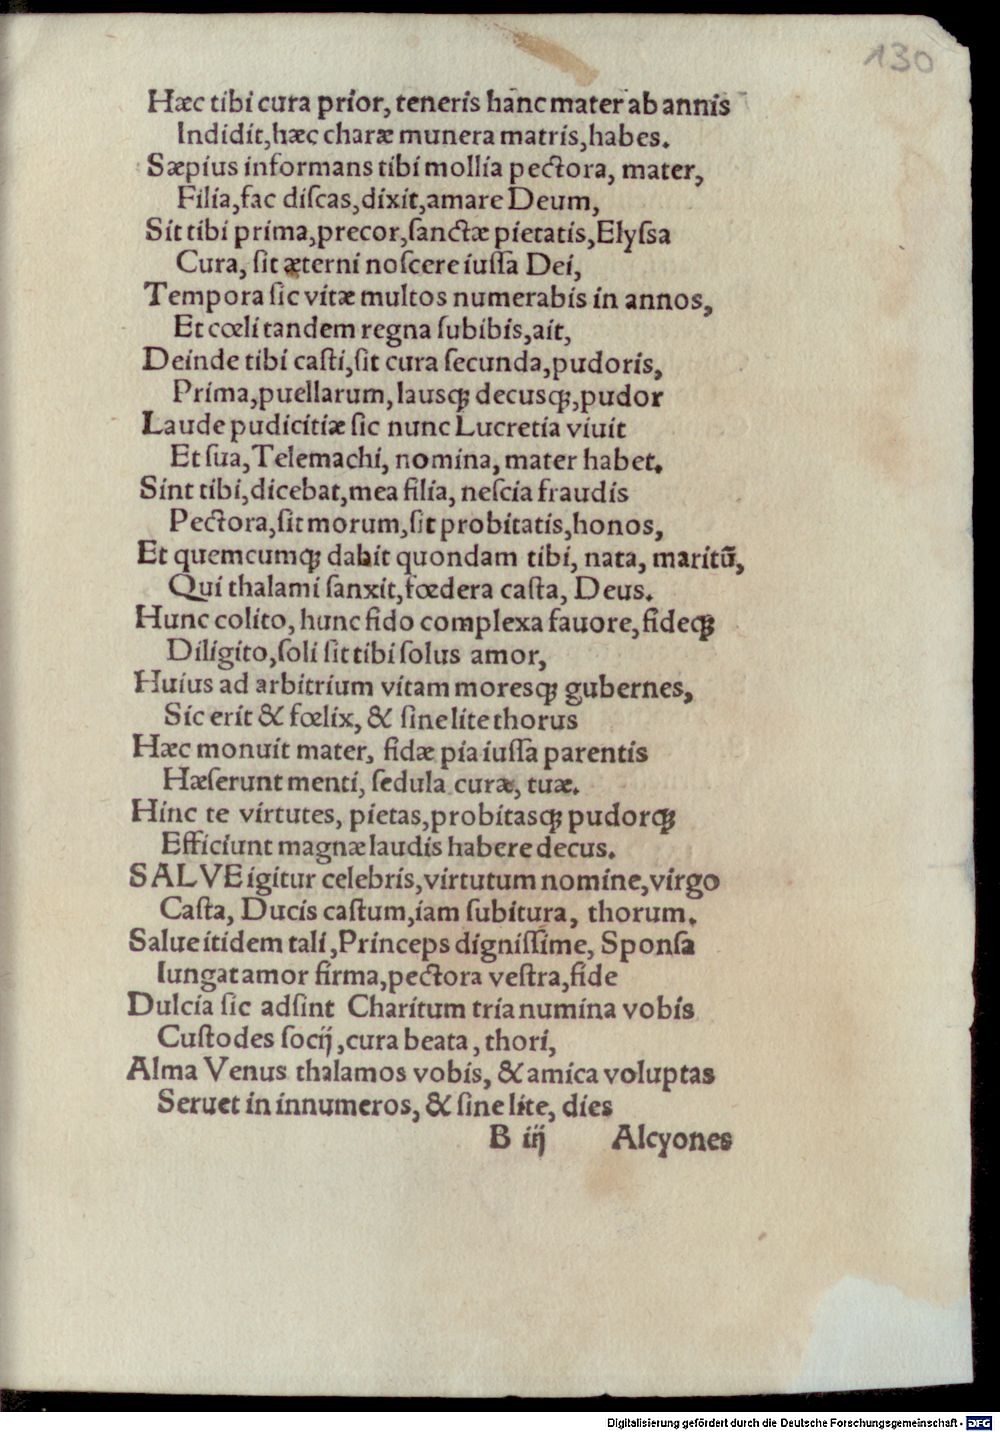 130
Hæc tibi cura prior, teneris hanc mater ab annis
Indidit, hæc charæ munera matris, habes.
Sæpius informans tibi mollia pectora, mater,
Filia, fac diſcas, dixit, amare Deum,
Sit tibi prima, precor, ſanctæ pietatis, Elyſsa
Cura, ſit æterni noſcere iuſſa Dei,
Tempora ſic vitæ multos numerabis in annos,
Et cœli tandem regna ſubibis, ait,
Deinde tibi caſti, ſit cura ſecunda, pudoris,
Prima, puellarum, lausꝗ decusꝗ, pudor
Laude pudicitiæ ſic nunc Lucretia viuit
Et ſua, Telemachi, nomina, mater habet.
Sint tibi, dicebat, mea filia, neſcia fraudis
Pectora, ſit morum, ſit probitatis, honos,
Et quemcumꝗ dabit quondam tibi, nata, maritũ,
Qui thalami ſanxit, fœdera caſta, Deus.
Hunc colito, hunc fido complexa fauore, fideꝗ
Diligito, ſoli ſit tibi ſolus amor,
Huius ad arbitrium vitam moresꝗ gubernes,
Sic erit & fœlix, & ſine lite thorus
Hæc monuit mater, fidæ pia iuſſa parentis
Hæſerunt menti, ſedula curæ, tuæ.
Hinc te virtutes, pietas, probitasꝗ pudorꝗ
Efficiunt magnæ laudis habere decus.
SALVE igitur celebris, virtutum nomine, virgo
Caſta, Ducis caſtum, iam ſubitura, thorum.
Salue itidem tali, Princeps digniſſime, Sponſa
Iungat amor firma, pectora veſtra, fide
Dulcia ſic adſint Charitum tria numina vobis
Cuſtodes ſocij, cura beata, thori,
Alma Venus thalamos vobis, & amica voluptas
Seruet in innumeros, & ſine lite, dies
B iij Alcyones
Digitalisierung gefördert durch die Deutsche Forschungsgemeinschaft - DFG